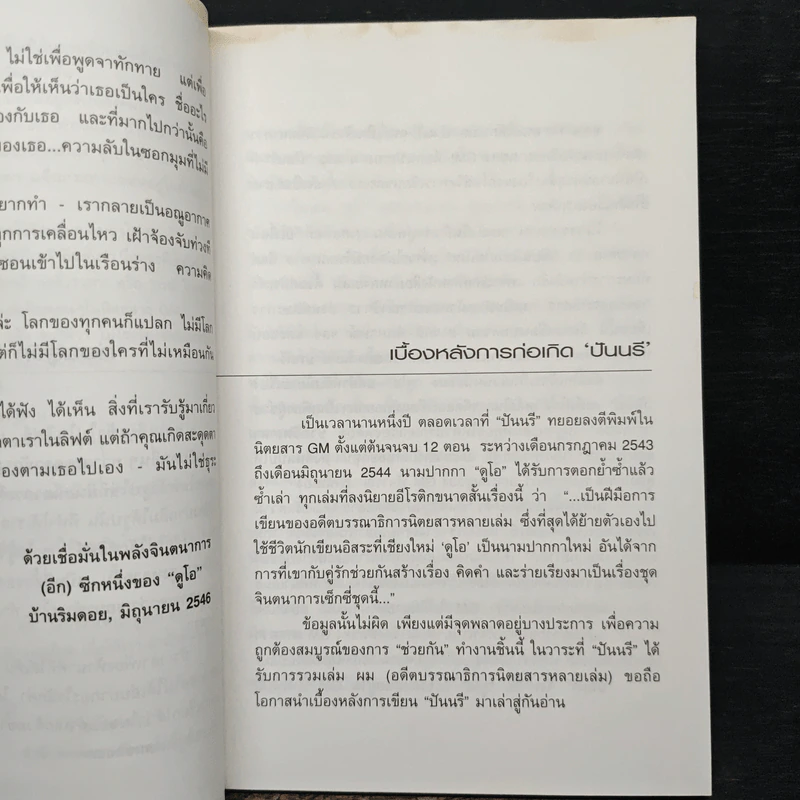 ไม่ใช่เพื่อพูดจาทักทาย แต่เพื่อ
เพื่อให้เห็นว่าเธอเป็นใคร ชื่ออะไร
องกับเธอ และที่มากไปกว่านั้นคือ
ของเธอ...ความลับในซอกมุมที่ไม่มี
ยากทำ - เรากลายเป็นอณูอากาศ
ทุกการเคลื่อนไหว เฝ้าจ้องจับท่วงที
ซอนเข้าไปในเรือนร่าง ความคิด
ล่ะ โลกของทุกคนก็แปลก ไม่มีโลก
ต่ก็ไม่มีโลกของใครที่ไม่เหมือนกัน
ได้ฟัง ได้เห็น สิ่งที่เรารับรู้มาเกี่ยว
ตาเราในลิฟต์ แต่ถ้าคุณเกิดสะดุดตา
องตามเธอไปเอง - มันไม่ใช่ธุระ
ด้วยเชื่อมั่นในพลังจินตนาการ
(อีก) ซีกหนึ่งของ "ดูโอ"
บ้านริมดอย, มิถุนายน 2546
เบื้องหลังการก่อเกิด 'ปันนรี'
เป็นเวลานานหนึ่งปี ตลอดเวลาที่ "ปันนรี" ทยอยลงตีพิมพ์ใน
นิตยสาร GM ตั้งแต่ต้นจนจบ 12 ตอน ระหว่างเดือนกรกฎาคม 2543
ถึงเดือนมิถุนายน 2544 นามปากกา "ดูโอ" ได้รับการตอกย้ำซ้ำแล้ว
ซ้ำเล่า ทุกเล่มที่ลงนิยายอีโรติกขนาดสั้นเรื่องนี้ ว่า "...เป็นฝีมือการ
เขียนของอดีตบรรณาธิการนิตยสารหลายเล่ม ซึ่งที่สุดได้ย้ายตัวเองไป
ใช้ชีวิตนักเขียนอิสระที่เชียงใหม่ 'ดูโอ' เป็นนามปากกาใหม่ อันได้จาก
การที่เขากับคู่รักช่วยกันสร้างเรื่อง คิดคำ และร่ายเรียงมาเป็นเรื่องชุด
จินตนาการเซ็กซี่ชุดนี้..."
ข้อมูลนั้นไม่ผิด เพียงแต่มีจุดพลาดอยู่บางประการ เพื่อความ
ถูกต้องสมบูรณ์ของการ "ช่วยกัน" ทำงานชิ้นนี้ ในวาระที่ "ปันนรี" ได้
รับการรวมเล่ม ผม (อดีตบรรณาธิการนิตยสารหลายเล่ม) ขอถือ
โอกาสนำเบื้องหลังการเขียน "ปันนรี" มาเล่าสู่กันอ่าน